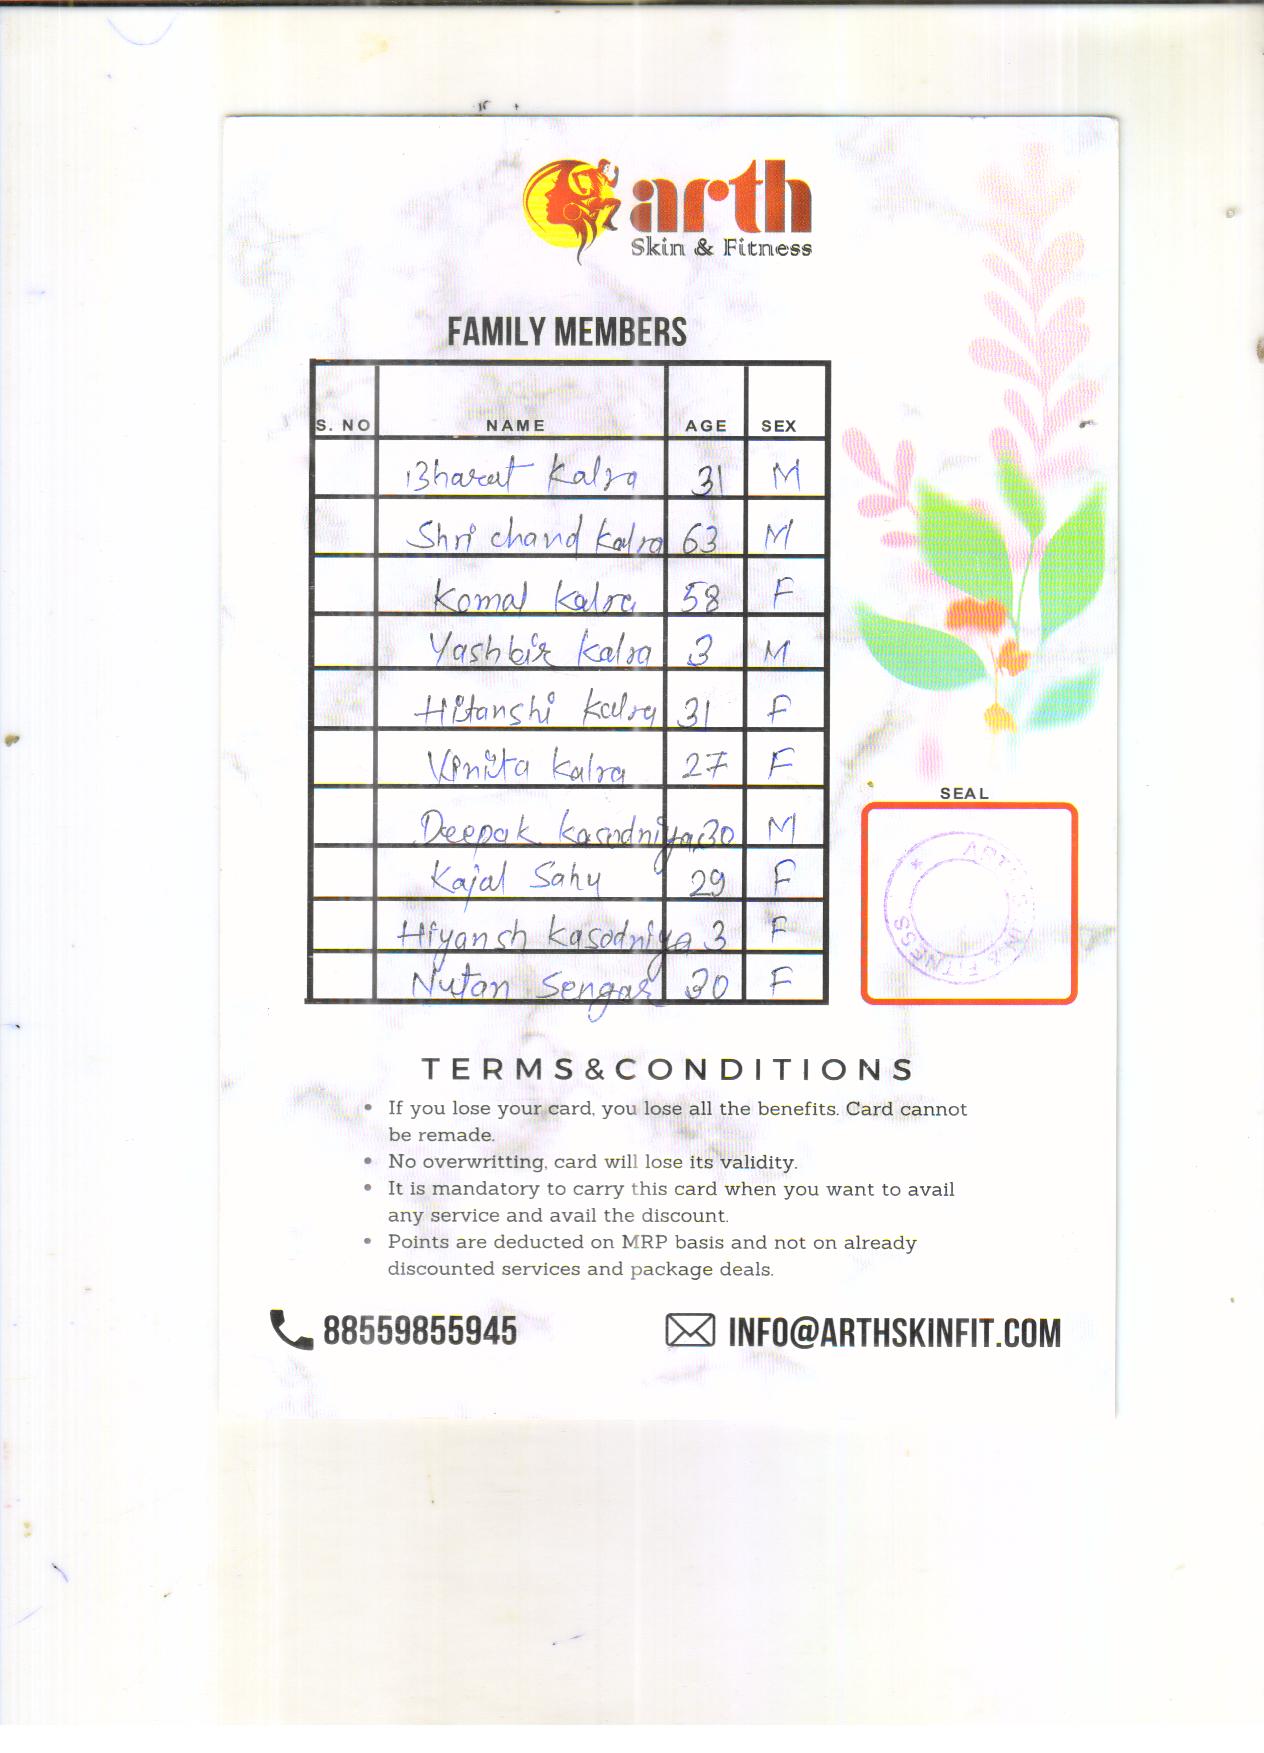 arth
Skin & Fitness
FAMILY MEMBERS
S. NO NAME AGE SEX
Bharat Kalra 31 M
Shri chand Kalra 63 M
Komal Kalra 58 F
Yashbir Kalra 3 M
Hitanshi Kalra 31 F
Vinita Kalra 27 F
Deepak Kasodniya 30 M
Kajal Sahu 29 F
Hiyansh Kasodniya 3 F
Nutan Sengar 30 F
SEAL
ARTH SKIN & FITNESS
TERMS&CONDITIONS
• If you lose your card, you lose all the benefits. Card cannot
be remade.
• No overwritting, card will lose its validity.
• It is mandatory to carry this card when you want to avail
any service and avail the discount.
• Points are deducted on MRP basis and not on already
discounted services and package deals.
88559855945 INFO@ARTHSKINFIT.COM